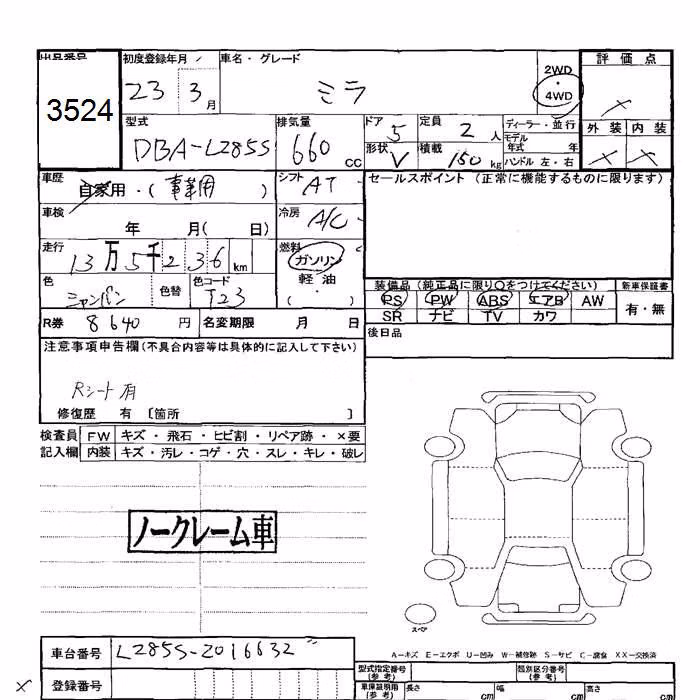 出品番号 初度登録年月 車名・グレード 2WD・4WD 評価点
3524 23 3月 ミラ
外装 内装
型式 排気量 ドア 5 定員 2人 ディーラー・並行
DBA-L285S 660cc 形状 V 積載 150kg モデル年式 年
ハンドル 左・右
車歴 自家用・(事業用) シフト AT セールスポイント(正常に機能するものに限ります)
車検 年 月( 日) 冷房 A/C
走行 13万5千236km 燃料 ガソリン
軽油
( )
色 色替 色コード T23 装備品(純正品に限り○をつけてください) 新車保証書
シャンパン
PS PW ABS エアB AW 有・無
SR ナビ TV カワ
R券 8640円 名変期限 月 日 後日品
注意事項申告欄(不具合内容等は具体的に記入して下さい)
Rシート有
修復歴 有 〔箇所 〕
検査員 FW キズ・飛石・ヒビ割・リペア跡・×要
記入欄 内装 キズ・汚レ・コゲ・穴・スレ・キレ・破レ
ノークレーム車
スペア
A-キズ E-エクボ U-凹み W-補修跡 S-サビ C-腐食 XX-交換済
車台番号 L285S-2016632
登録番号
型式指定番号(参考) 類別区分番号(参考)
車庫証明用(参考) 長さ cm 幅 cm 高さ cm